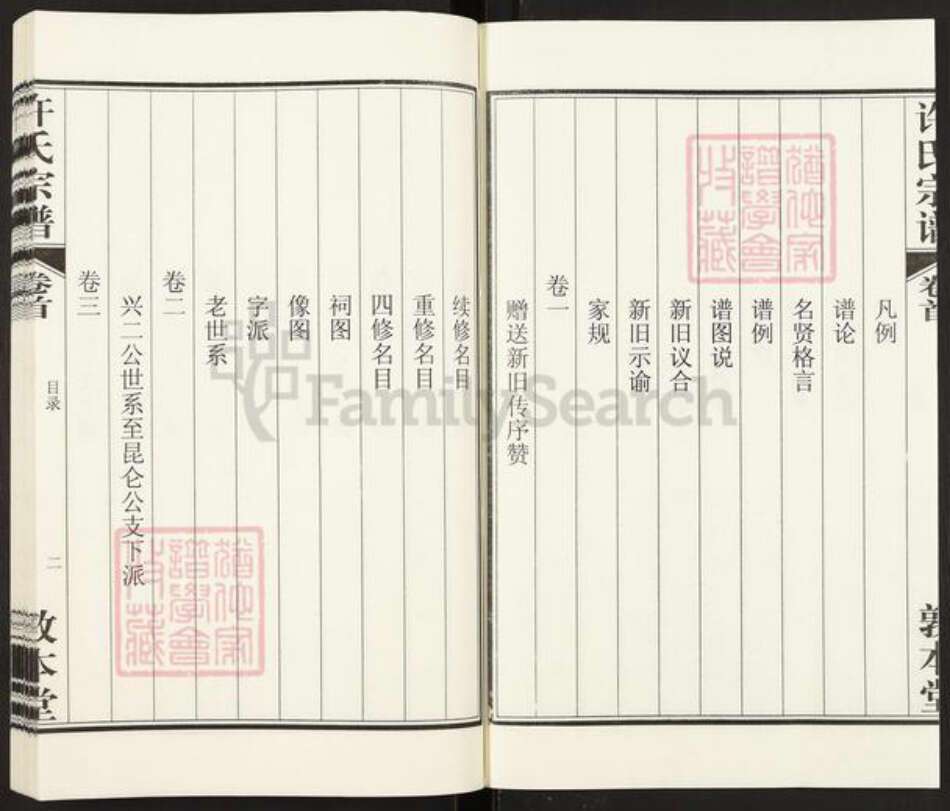 许氏宗谱
卷首
敦本堂
凡例
谱论
名贤格言
谱例
谱图说
新旧议合
新旧示谕
家规
卷一
赠送新旧传序赞
续修名目
重修名目
四修名目
祠图
像图
字派
老世系
卷二
兴二公世系至昆仑公支下派
卷三
许氏宗谱
卷首
目录
二
敦本堂
FamilySearch